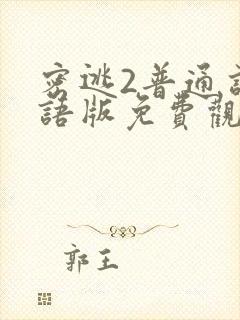 密逃2普通話
語版免費觀
郭王